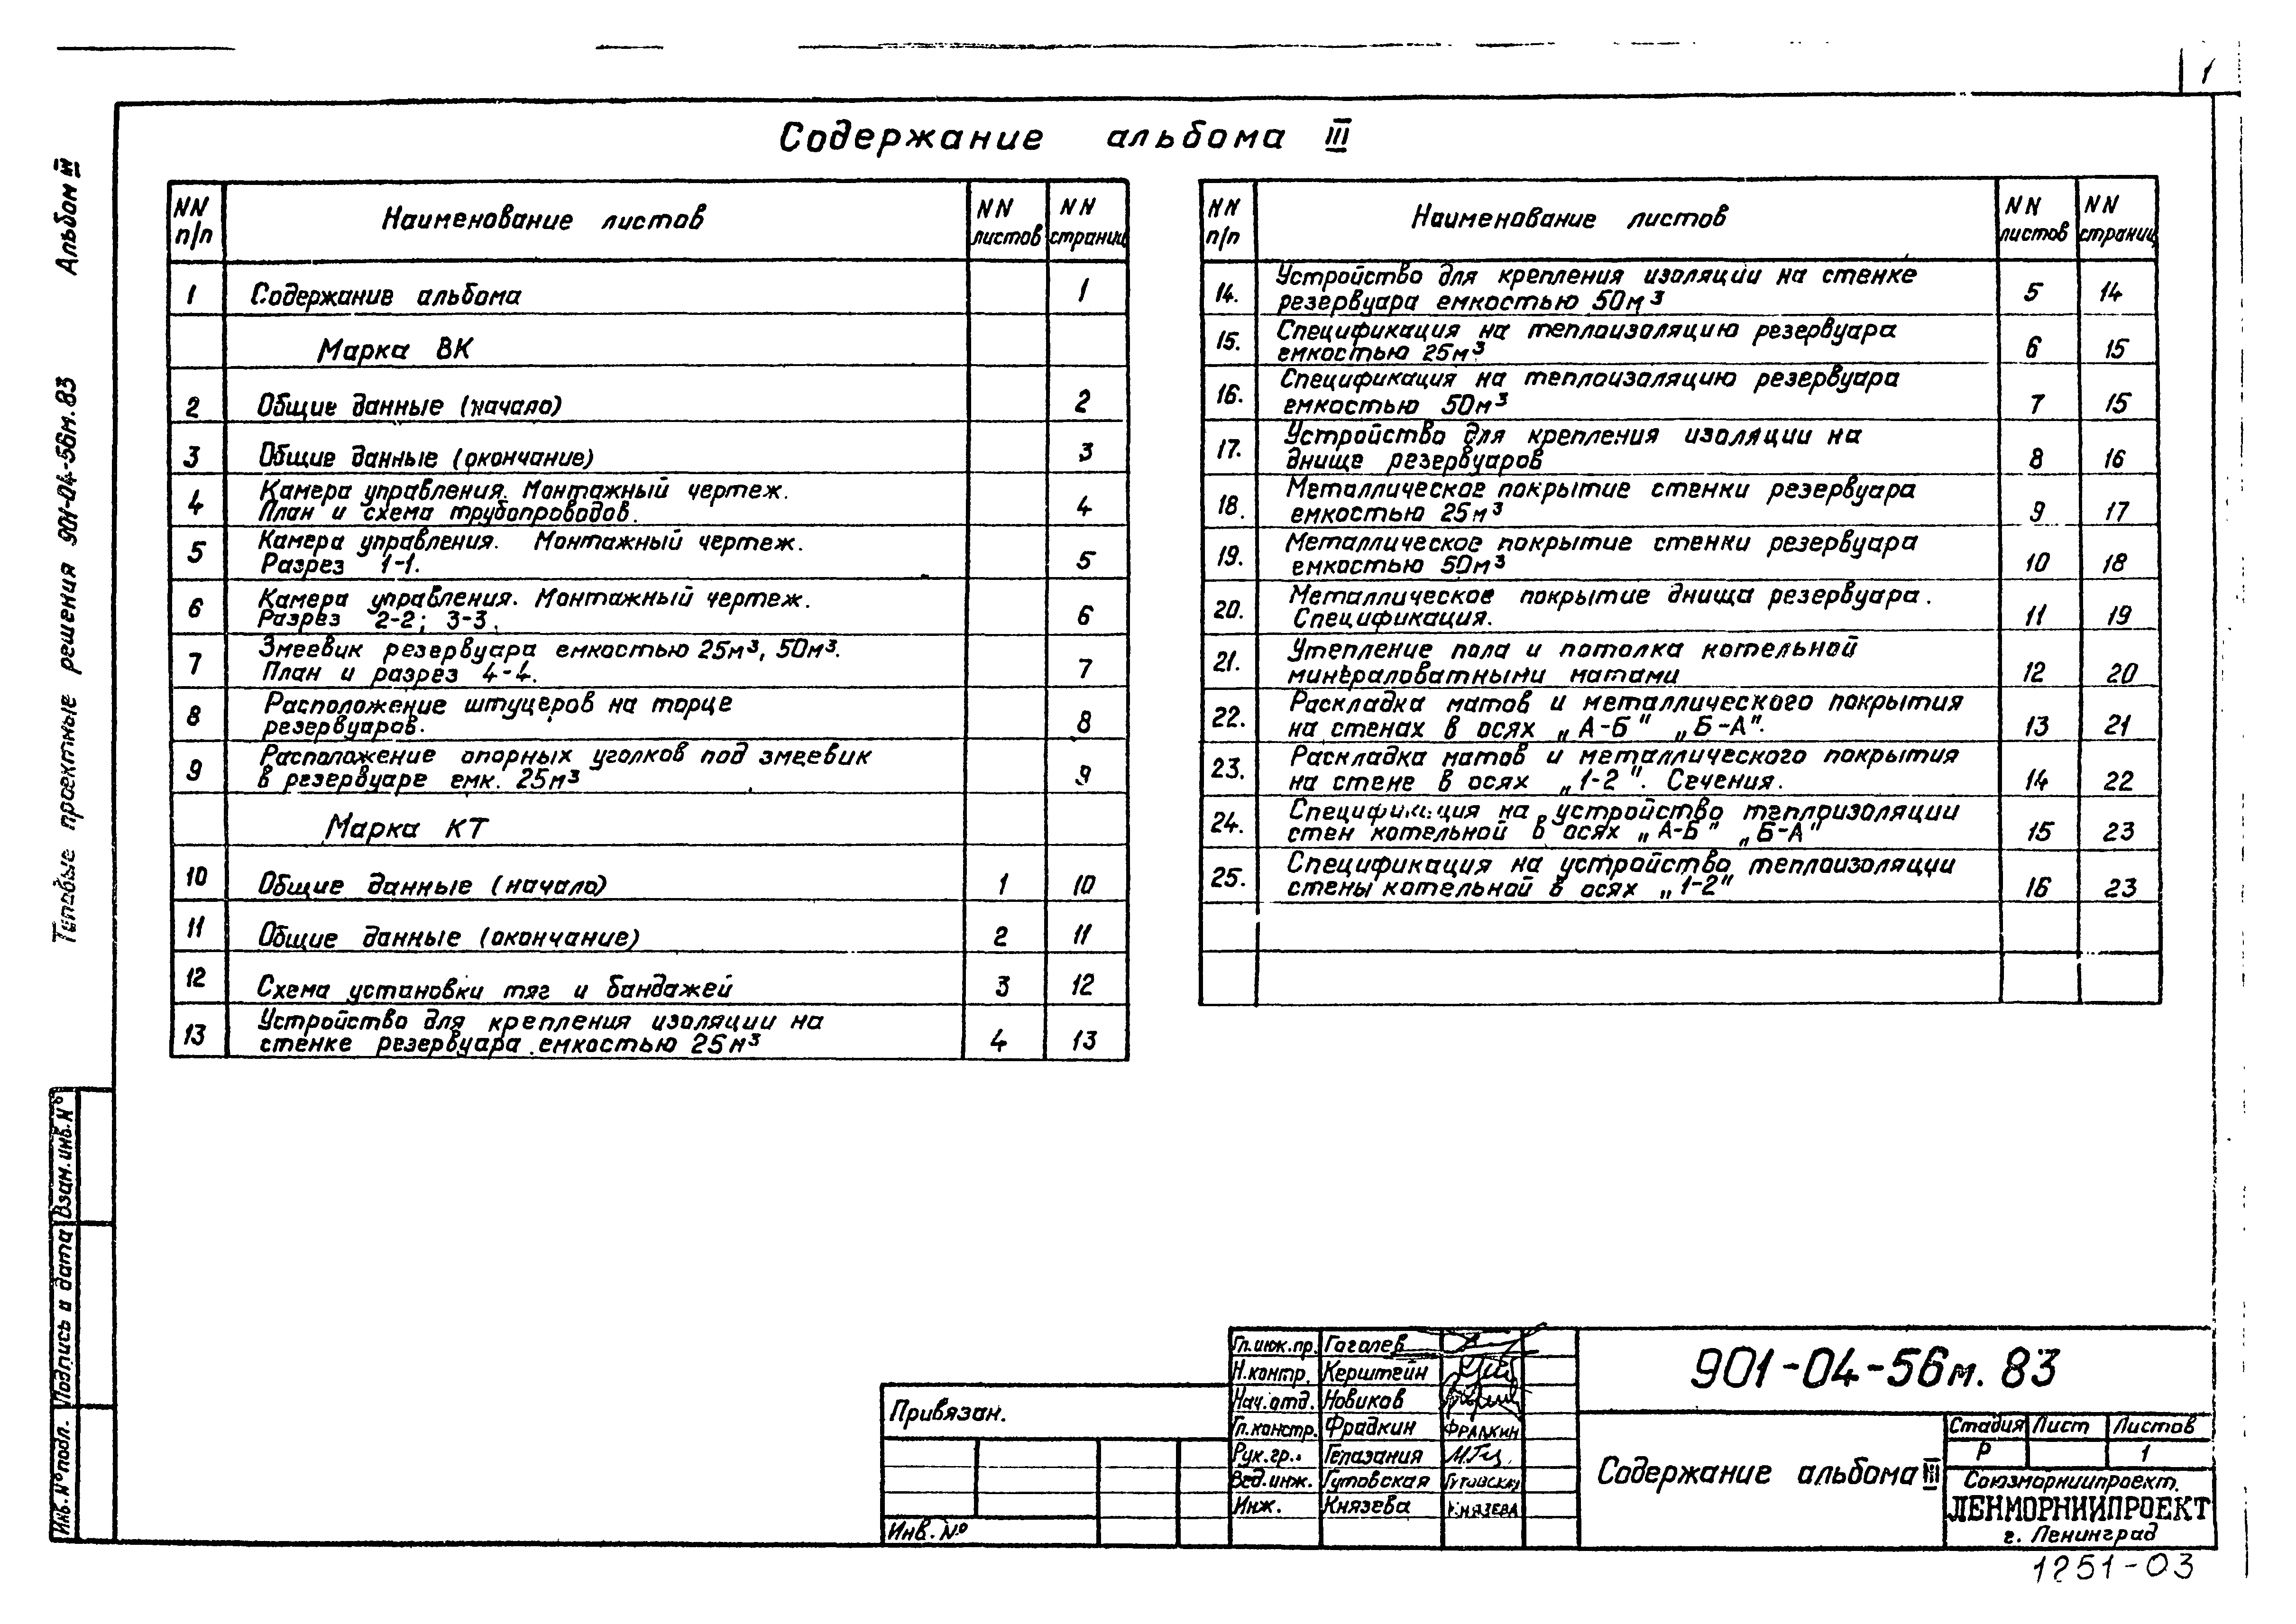 1
Содержание альбома III
Альбом III
Типовые проектные решения 901-04-56м.83
NN п/п
Наименование листов
NN листов
NN страниц
1 Содержание альбома 1
Марка ВК
2 Общие данные (начало) 2
3 Общие данные (окончание) 3
4 Камера управления. Монтажный чертеж.
План и схема трубопроводов. 4
5 Камера управления. Монтажный чертеж.
Разрез 1-1. 5
6 Камера управления. Монтажный чертеж.
Разрез 2-2; 3-3. 6
7 Змеевик резервуара емкостью 25м³, 50м³.
План и разрез 4-4. 7
8 Расположение штуцеров на торце
резервуаров. 8
9 Расположение опорных уголков под змеевик
в резервуаре емк. 25м³ 9
Марка КТ
10 Общие данные (начало) 1 10
11 Общие данные (окончание) 2 11
12 Схема установки тяг и бандажей 3 12
13 Устройство для крепления изоляции на
стенке резервуара емкостью 25м³ 4 13
NN п/п
Наименование листов
NN листов
NN страниц
14. Устройство для крепления изоляции на стенке
резервуара емкостью 50м³ 5 14
15. Спецификация на теплоизоляцию резервуара
емкостью 25м³ 6 15
16. Спецификация на теплоизоляцию резервуара
емкостью 50м³ 7 15
17. Устройство для крепления изоляции на
днище резервуаров 8 16
18. Металлическое покрытие стенки резервуара
емкостью 25м³ 9 17
19. Металлическое покрытие стенки резервуара
емкостью 50м³ 10 18
20. Металлическое покрытие днища резервуара.
Спецификация. 11 19
21. Утепление пола и потолка котельной
минераловатными матами 12 20
22. Раскладка матов и металлического покрытия
на стенах в осях „А-Б" „Б-А". 13 21
23. Раскладка матов и металлического покрытия
на стене в осях „1-2". Сечения. 14 22
24. Спецификация на устройство теплоизоляции
стен котельной в осях „А-Б" „Б-А" 15 23
25. Спецификация на устройство теплоизоляции
стены котельной в осях „1-2" 16 23
Взам.инв.N°
Подпись и дата
Инв.N°подл.
Привязан.
Инв.N°
Гл.инж.пр. Гагалев
Н.контр. Керштейн
Нач.отд. Новиков
Гл.констр. Фрадкин Фрадкин
Рук.гр. Гелазания
Вед.инж. Гутовская Гутовская
Инж. Князева Князева
901-04-56м.83
Содержание альбома III
Стадия Лист Листов
Р 1
Союзморниипроект.
ЛЕНМОРНИИПРОЕКТ
г. Ленинград
1251-03